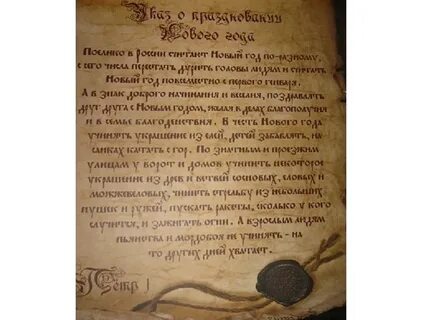 Указ о праздновании
Нового года
Поелико в России считают Новый год по-разному,
с сего числа перестать дурить головы людям и считать
Новый год повсеместно с первого генваря.
А в знак доброго начинания и веселия, поздравлять
друг друга с Новым годом, желая в делах благополучия
и в семье благоденствия. В честь Нового года
учинять украшение из елей, детей забавлять, на
санках катать с гор. По знатным и проезжим
улицам у ворот и домов учинить некоторое
украшение из древ и ветвей сосновых, еловых и
можжевеловых, чинить стрельбу из небольших
пушек и ружей, пускать ракеты, сколько у кого
случится, и зажигать огни. А взрослым людям
пьянства и мордобоя не учинять - на
то других дней хватает.
Петр I